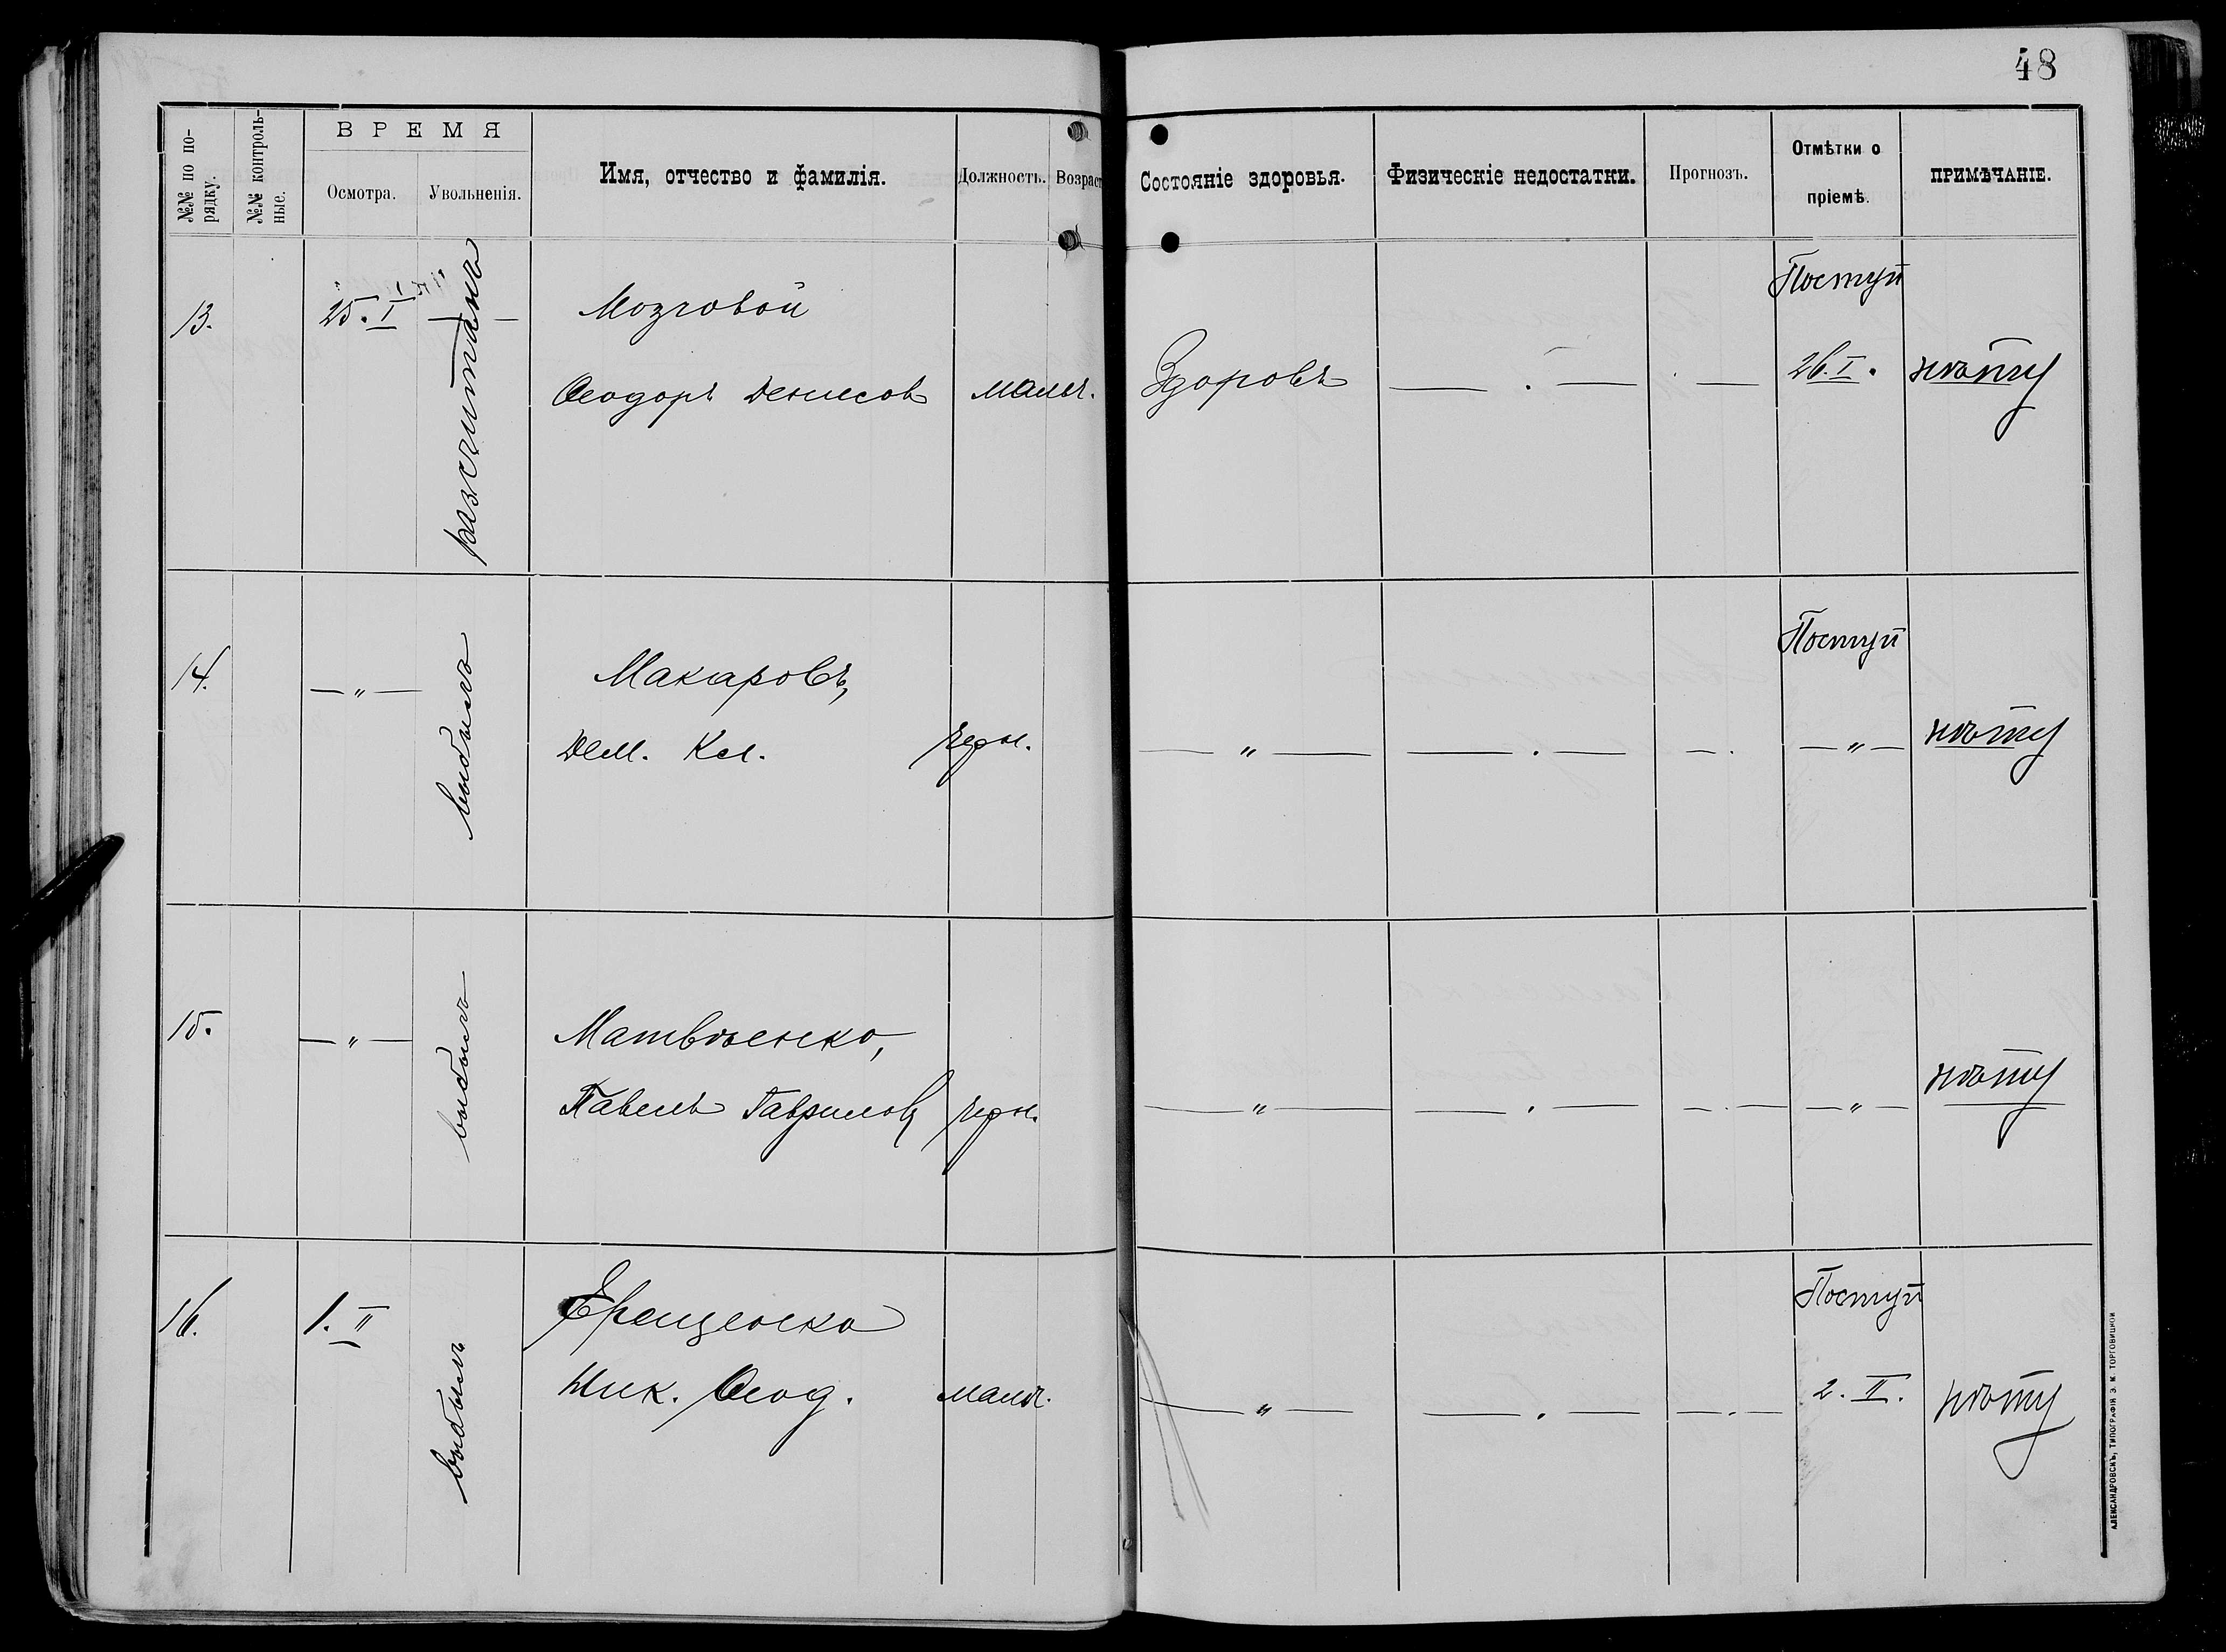 48
№№ по по-
рядку.
№№ контроль-
ные.
ВРЕМЯ
Осмотра.
Увольненія.
Имя, отчество и фамилія.
Должность.
Возраст
Состояніе здоровья.
Физическіе недостатки.
Прогнозъ.
Отмѣтки о
пріемѣ.
ПРИМѢЧАНІЕ.
13.
25. I
разсчитанъ
Мозговой
Ѳеодоръ Денисов
мальч.
Здоровъ
— . —
. —
Поступ
26. I.
нѣту
14.
— „ —
выбылъ
Макаровъ,
Дем. Кл.
черн.
— „ —
— . —
— .
Поступ
— „ —
нѣту
15.
— „ —
выбылъ
Матвѣенко,
Павелъ Гаврилов
черн.
— „ —
— . —
— . —
— „ —
нѣту
16.
1. II
выбылъ
Ерещенко
Ник. Ѳеод.
мальч.
— „ —
— . —
— . —
Поступ
2. II.
нѣту
АЛЕКСАНДРОВСКЪ, ТИПОГРАФІЯ З. М. ТОРГОВИЦКОЙ